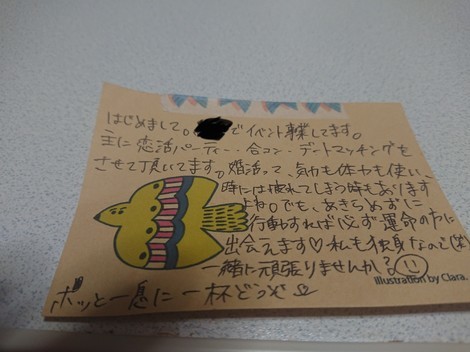 はじめまして。でイベント事業してます。
主に恋活パーティー・合コン・デートマッチングを
させて頂いてます。婚活って、気力も体力も使い、
時には疲れてしまう時もあります
よね。でも、あきらめずに
行動すれば必ず運命の方に
出会えます♡私も独身なので(笑)
一緒に頑張りませんか?
illustration by Clara.
ホッと一息に一杯どうぞ